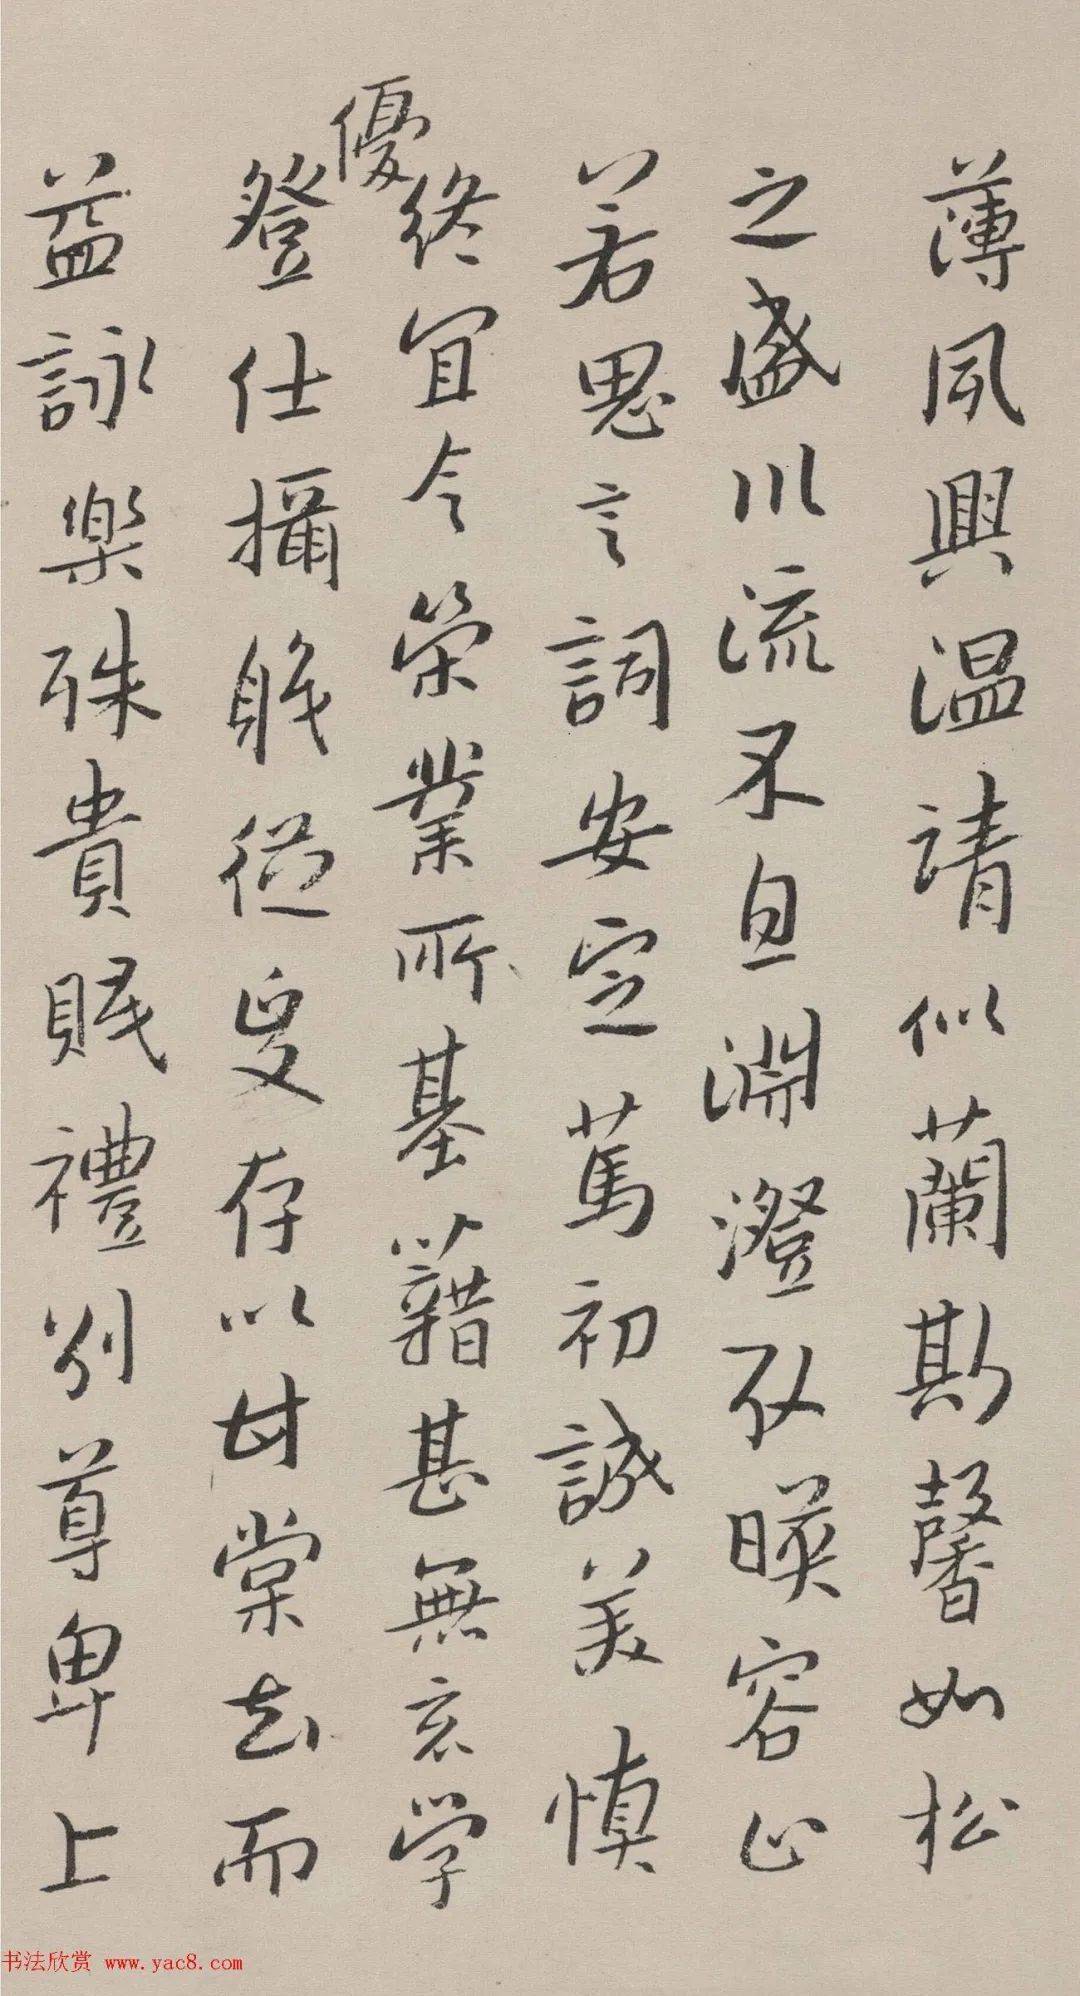 薄夙興温請似蘭斯馨如松
之盛川流不息淵澄取暎容止
若思言詞安定篤初誠美慎
終宜令榮業所基藉甚無竟学
優
登仕攝職從政存以甘棠去而
益詠樂殊貴賤禮別尊卑上
书法欣赏 www.yac8.com